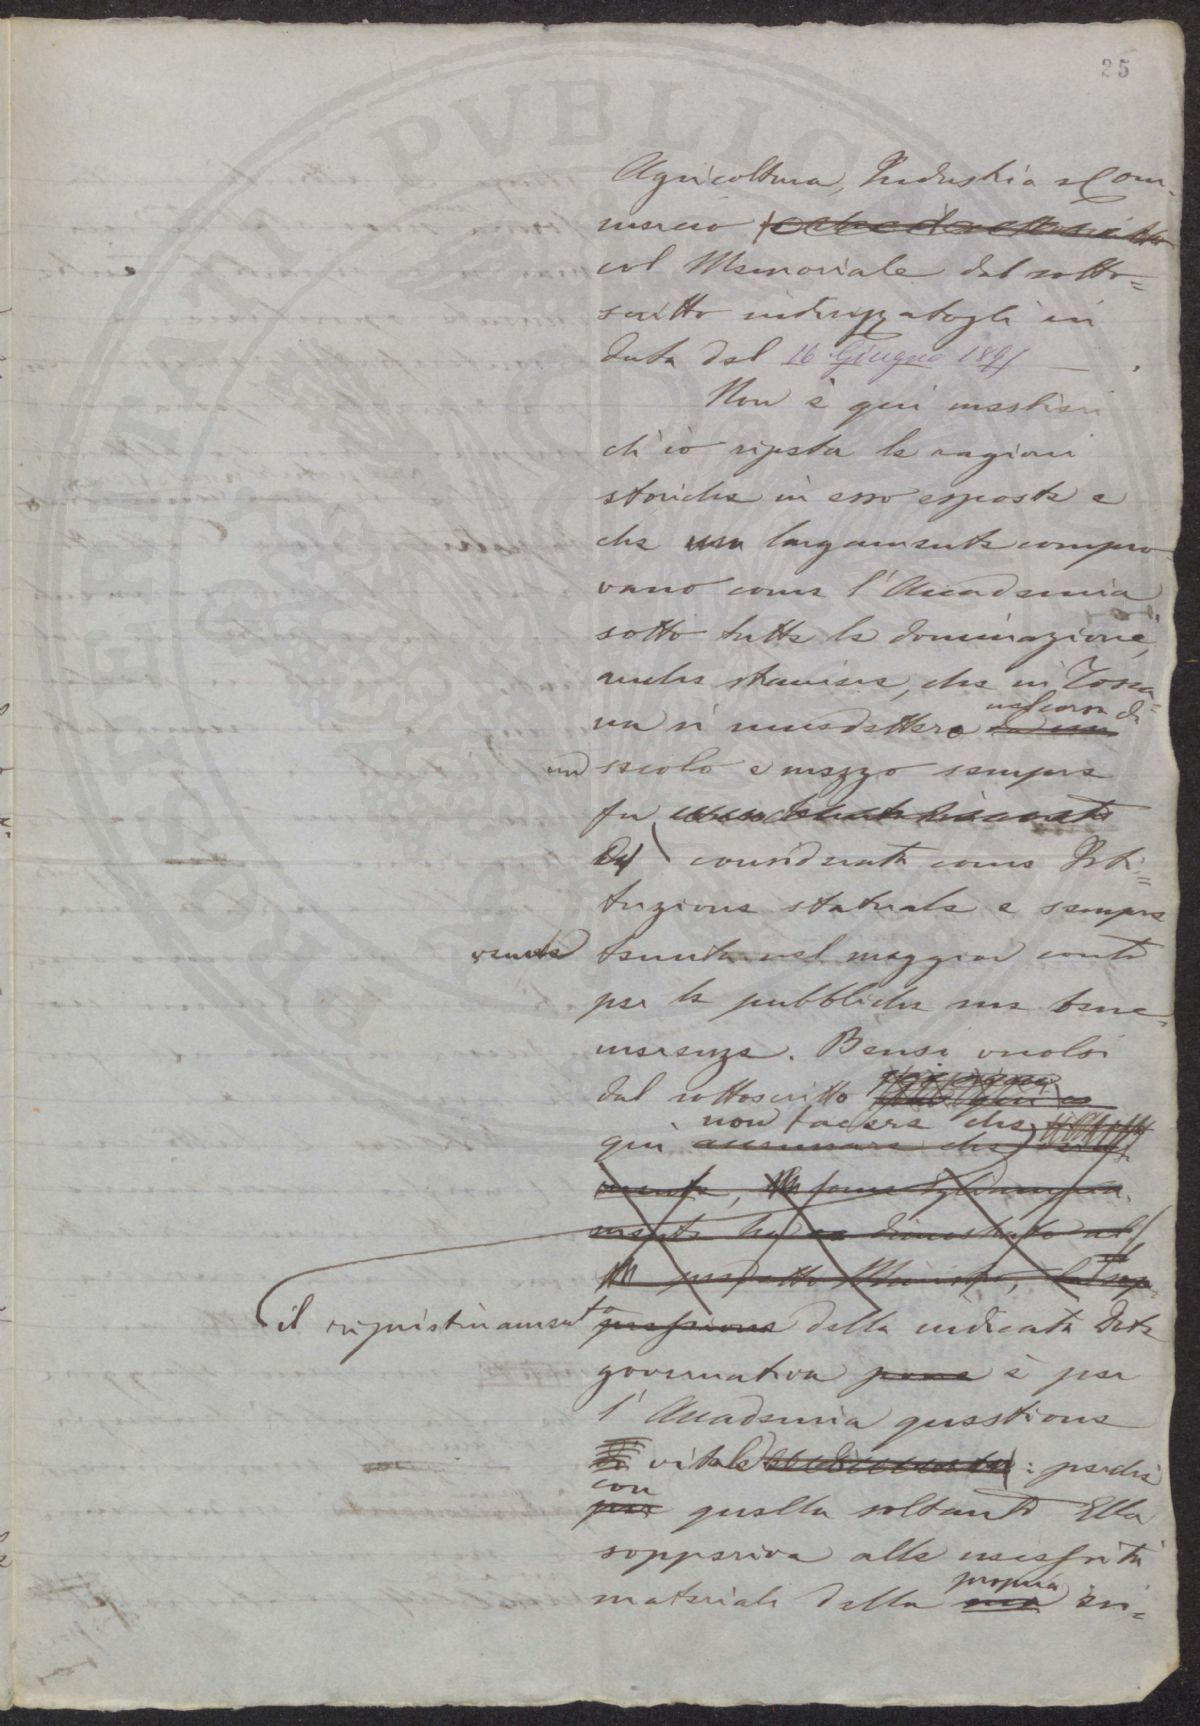 25
Agricoltura, Industria e Com-
mercio
col Memoriale dal sotto=
scritto indirizzatogli in
data del 16 Giugno 1891.
Non è qui mestieri
ch'io ripeta le ragioni
storiche in esso esposte e
che largamente compro-
vano come l'Accademia
sotto tutte le dominazioni,
anche straniere, che in Tosca=
na si succedettero nel corso di
un secolo e mezzo sempre
fu
considerata come Isti=
tuzione statuale e sempre
tenuta nel maggior conto
per le pubbliche sue bene-
merenze. Bensì vuolsi
dal sottoscritto
non tacere che
qui accennare che
mente ha dimostrato al
predetto Ministro, la sop
il ripristinamento pressione della indicata Dote
governativa pone è per
l'Accademia questione
di vitale : perchè
con
per quella soltanto Ella
sopperiva alle necessità
propria
materiali della sua esi=